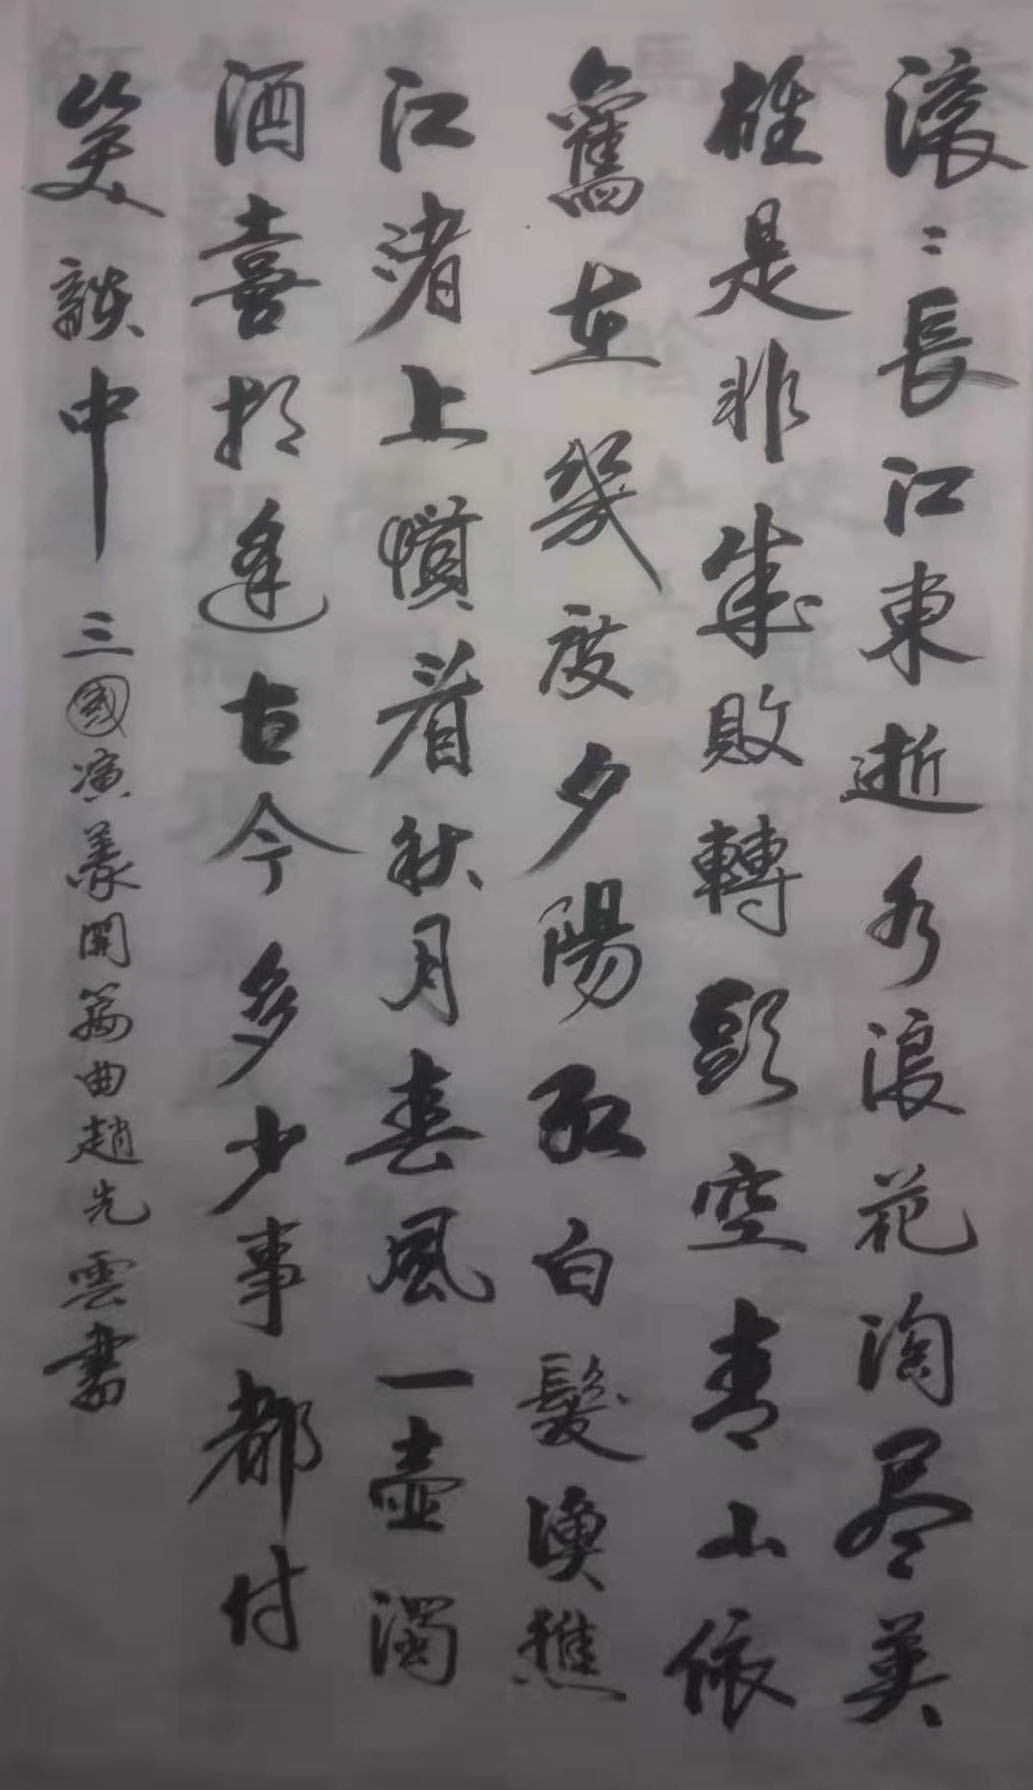 滚〻長江東逝水浪花淘尽英
雄是非成敗轉頭空青山依
舊在幾度夕陽紅白髮漁樵
江渚上慣看秋月春風一壺濁
酒喜相逢古今多少事都付
笑談中 三國演義開篇曲趙先雲書